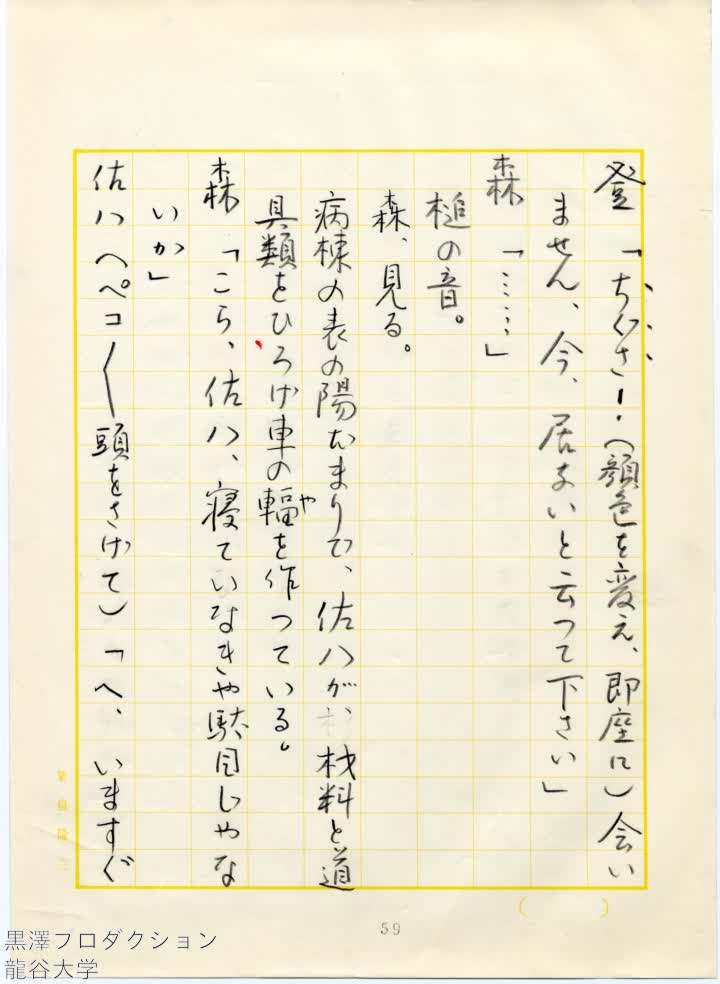 登「ちぐさ！（顔色を変え、即座に）会い
ません、今、居ないと云つて下さい」
森「……」
槌の音。
森、見る。
病棟の表の陽だまりで、佐八が、材料と道
具類をひろげ車の輻を作つている。
や
森「こら、佐八、寝ていなきや駄目じやな
いか」
佐八（ペコ〳〵頭をさげて）「へ、いますぐ
59
黒澤プロダクション
龍谷大学